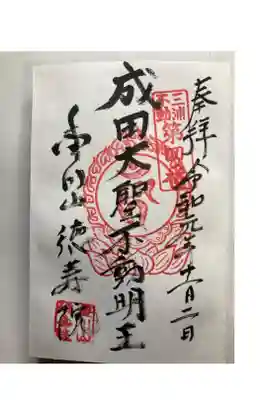 奉拝 令和元年十一月二日
三浦
不動
第四番
成田大聖不動明王
徳寿院